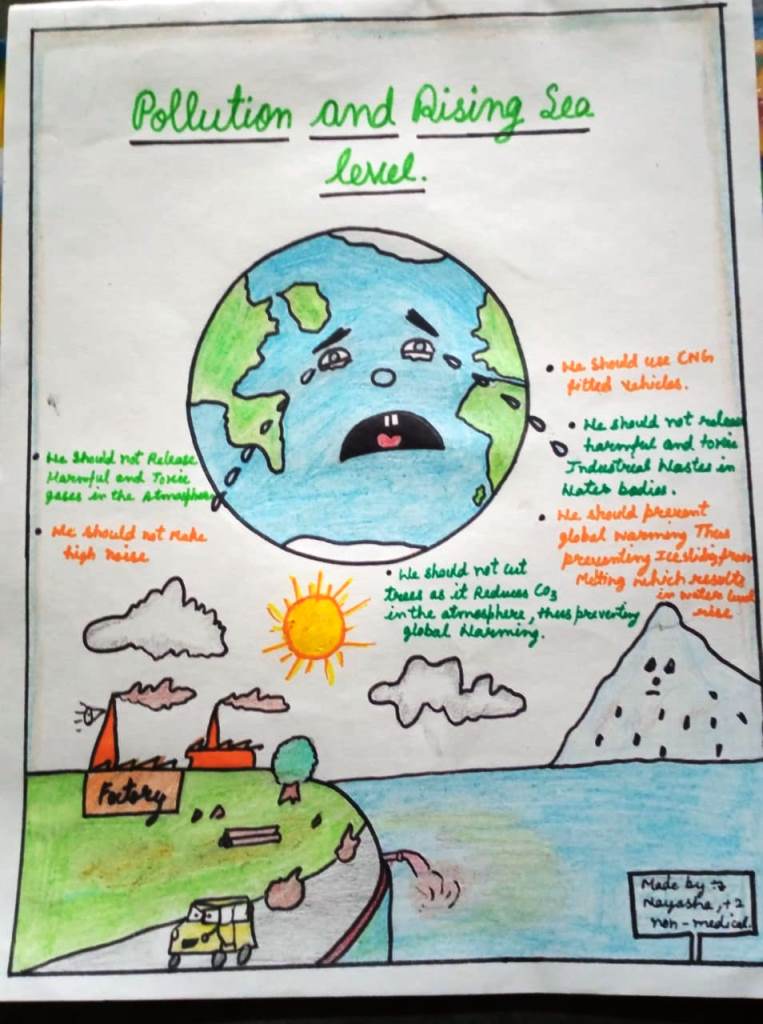 Pollution and Rising Sea
level.
• We should use CNG
fitted vehicles.
• We should not release
harmful and toxic
Industrial Wastes in
Water bodies.
• We should not Release
Harmful and Toxic
gases in the Atmosphere
• We should not make
high noise
• We should prevent
global warming Thus
preventing Ice slides from
Melting which results
in water level
rise
• We should not cut
trees as it Reduces CO3
in the atmosphere, thus preventing
global Warming.
Factory
Made by :-
Nayasha, +2
non-medical.